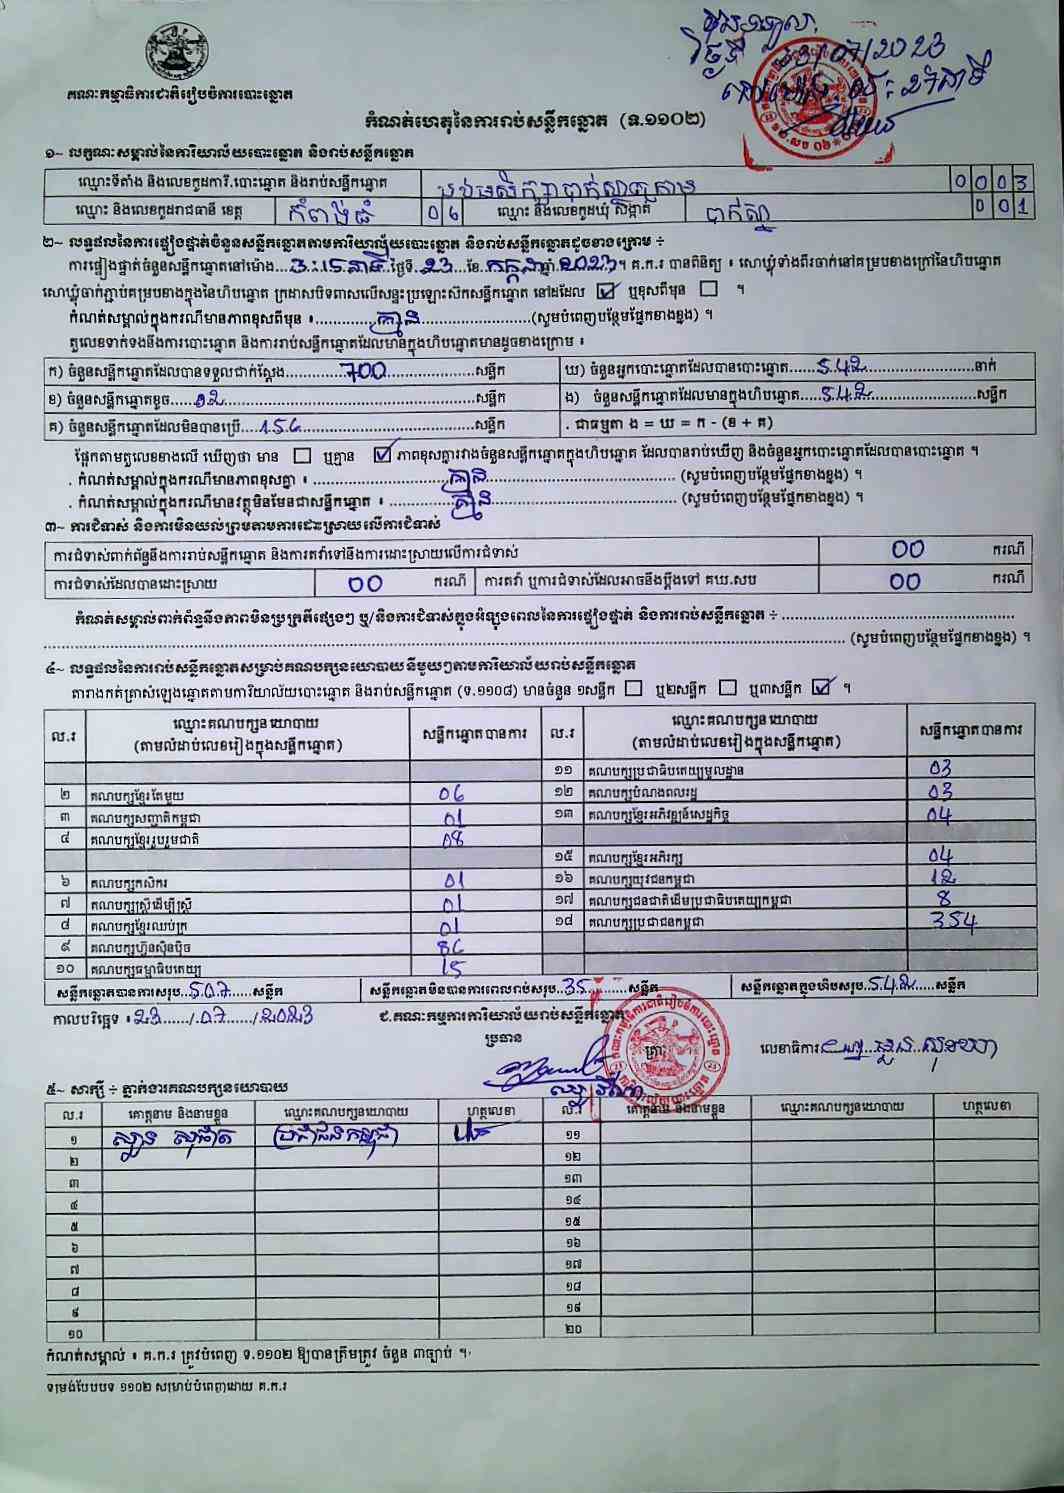 ថ្ងៃទី 23/07/2023
គណៈកម្មាធិការជាតិរៀបចំការបោះឆ្នោត
កំណត់ហេតុនៃការរាប់សន្លឹកឆ្នោត (ទ.១១០២)
១~ លក្ខណៈសម្គាល់នៃការិយាល័យបោះឆ្នោត និងរាប់សន្លឹកឆ្នោត
ឈ្មោះទីតាំង និងលេខកូដការិ.បោះឆ្នោត និងរាប់សន្លឹកឆ្នោត 0003
ឈ្មោះ និងលេខកូដរាជធានី ខេត្ត កំពង់ធំ 06 ឈ្មោះ និងលេខកូដឃុំ សង្កាត់ បាក់ស្នា 001
២~ លទ្ធផលនៃការផ្ទៀងផ្ទាត់ចំនួនសន្លឹកឆ្នោតតាមការិយាល័យបោះឆ្នោត និងរាប់សន្លឹកឆ្នោតដូចខាងក្រោម ÷
ការផ្ទៀងផ្ទាត់ចំនួនសន្លឹកឆ្នោតនៅម៉ោង...3:15នាទី...ថ្ងៃទី...23...ខែ.កក្កដា.ឆ្នាំ.2023។ គ.ក.រ បានពិនិត្យ ៖ សោឃ្លុំទាំងពីរចាក់នៅគម្របខាងក្រៅនៃហិបឆ្នោត
សោឃ្លុំចាក់ភ្ជាប់គម្របខាងក្នុងនៃហិបឆ្នោត ក្រដាសបិទពាសលើសន្ទះប្រឡោះស៊កសន្លឹកឆ្នោត នៅដដែល ☑ ឬខុសពីមុន ☐ ។
កំណត់សម្គាល់ក្នុងករណីមានភាពខុសពីមុន ៖ គ្មាន (សូមបំពេញបន្ថែមផ្នែកខាងខ្នង) ។
តួលេខទាក់ទងនឹងការបោះឆ្នោត និងការរាប់សន្លឹកឆ្នោតដែលមានក្នុងហិបឆ្នោតមានដូចខាងក្រោម ៖
ក) ចំនួនសន្លឹកឆ្នោតដែលបានទទួលជាក់ស្តែង 700 សន្លឹក ឃ) ចំនួនអ្នកបោះឆ្នោតដែលបានបោះឆ្នោត 542 នាក់
ខ) ចំនួនសន្លឹកឆ្នោតខូច 02 សន្លឹក ង) ចំនួនសន្លឹកឆ្នោតដែលមានក្នុងហិបឆ្នោត 542 សន្លឹក
គ) ចំនួនសន្លឹកឆ្នោតដែលមិនបានប្រើ 156 សន្លឹក . ជាធម្មតា ង = ឃ = ក - (ខ + គ)
ផ្អែកតាមតួលេខខាងលើ ឃើញថា មាន ☐ ឬគ្មាន ☑ ភាពខុសគ្នារវាងចំនួនសន្លឹកឆ្នោតក្នុងហិបឆ្នោត ដែលបានរាប់ឃើញ និងចំនួនអ្នកបោះឆ្នោតដែលបានបោះឆ្នោត ។
. កំណត់សម្គាល់ក្នុងករណីមានភាពខុសគ្នា ៖ គ្មាន (សូមបំពេញបន្ថែមផ្នែកខាងខ្នង) ។
. កំណត់សម្គាល់ក្នុងករណីមានវត្ថុមិនមែនជាសន្លឹកឆ្នោត ៖ គ្មាន (សូមបំពេញបន្ថែមផ្នែកខាងខ្នង) ។
៣~ ការជំទាស់ និងការមិនយល់ព្រមតាមការដោះស្រាយលើការជំទាស់
ការជំទាស់ពាក់ព័ន្ធនឹងការរាប់សន្លឹកឆ្នោត និងការតវ៉ាទៅនឹងការដោះស្រាយលើការជំទាស់ 00 ករណី
ការជំទាស់ដែលបានដោះស្រាយ 00 ករណី ការតវ៉ា ឬការជំទាស់ដែលអាចនឹងប្តឹងទៅ គឃ.សប 00 ករណី
កំណត់សម្គាល់ពាក់ព័ន្ធនឹងភាពមិនប្រក្រតីផ្សេងៗ ឬ/និងការជំទាស់ក្នុងអំឡុងពេលនៃការផ្ទៀងផ្ទាត់ និងការរាប់សន្លឹកឆ្នោត ÷
(សូមបំពេញបន្ថែមផ្នែកខាងខ្នង) ។
៤~ លទ្ធផលនៃការរាប់សន្លឹកឆ្នោតសម្រាប់គណបក្សនយោបាយនីមួយៗតាមការិយាល័យរាប់សន្លឹកឆ្នោត
តារាងកត់ត្រាសំឡេងឆ្នោតតាមការិយាល័យបោះឆ្នោត និងរាប់សន្លឹកឆ្នោត (ទ.១១០៨) មានចំនួន ១សន្លឹក ☐ ឬ២សន្លឹក ☐ ឬ៣សន្លឹក ☑ ។
ល.រ ឈ្មោះគណបក្សនយោបាយ (តាមលំដាប់លេខរៀងក្នុងសន្លឹកឆ្នោត) សន្លឹកឆ្នោតបានការ ល.រ ឈ្មោះគណបក្សនយោបាយ (តាមលំដាប់លេខរៀងក្នុងសន្លឹកឆ្នោត) សន្លឹកឆ្នោតបានការ
១១ គណបក្សប្រជាធិបតេយ្យមូលដ្ឋាន 03
២ គណបក្សខ្មែរតែមួយ 06 ១២ គណបក្សបំណងពលរដ្ឋ 03
៣ គណបក្សសញ្ជាតិកម្ពុជា 01 ១៣ គណបក្សខ្មែរអភិវឌ្ឍន៍សេដ្ឋកិច្ច 04
៤ គណបក្សខ្មែររួបរួមជាតិ 08
១៥ គណបក្សខ្មែរអភិរក្ស 04
៦ គណបក្សកសិករ 01 ១៦ គណបក្សយុវជនកម្ពុជា 12
៧ គណបក្សស្ត្រីដើម្បីស្ត្រី 01 ១៧ គណបក្សជនជាតិដើមប្រជាធិបតេយ្យកម្ពុជា 8
៨ គណបក្សខ្មែរឈប់ក្រ 01 ១៨ គណបក្សប្រជាជនកម្ពុជា 354
៩ គណបក្សហ្វ៊ុនស៊ិនប៉ិច 86
១០ គណបក្សធម្មាធិបតេយ្យ 15
សន្លឹកឆ្នោតបានការសរុប 507 សន្លឹក សន្លឹកឆ្នោតមិនបានការពេលរាប់សរុប 35 សន្លឹក សន្លឹកឆ្នោតក្នុងហិបសរុប 542 សន្លឹក
កាលបរិច្ឆេទ ៖ 23/07/2023 ជ.គណៈកម្មការការិយាល័យរាប់សន្លឹកឆ្នោត
ប្រធាន ត្រា លេខាធិការ
៥~ សាក្សី ÷ ភ្នាក់ងារគណបក្សនយោបាយ
ល.រ គោត្តនាម និងនាមខ្លួន ឈ្មោះគណបក្សនយោបាយ ហត្ថលេខា ល.រ គោត្តនាម និងនាមខ្លួន ឈ្មោះគណបក្សនយោបាយ ហត្ថលេខា
១ ប្រជាជនកម្ពុជា ១១
២ ១២
៣ ១៣
៤ ១៤
៥ ១៥
៦ ១៦
៧ ១៧
៨ ១៨
៩ ១៩
១០ ២០
កំណត់សម្គាល់ ៖ គ.ក.រ ត្រូវបំពេញ ទ.១១០២ ឱ្យបានត្រឹមត្រូវ ចំនួន ៣ច្បាប់ ។
ទម្រង់បែបបទ ១១០២ សម្រាប់បំពេញដោយ គ.ក.រ